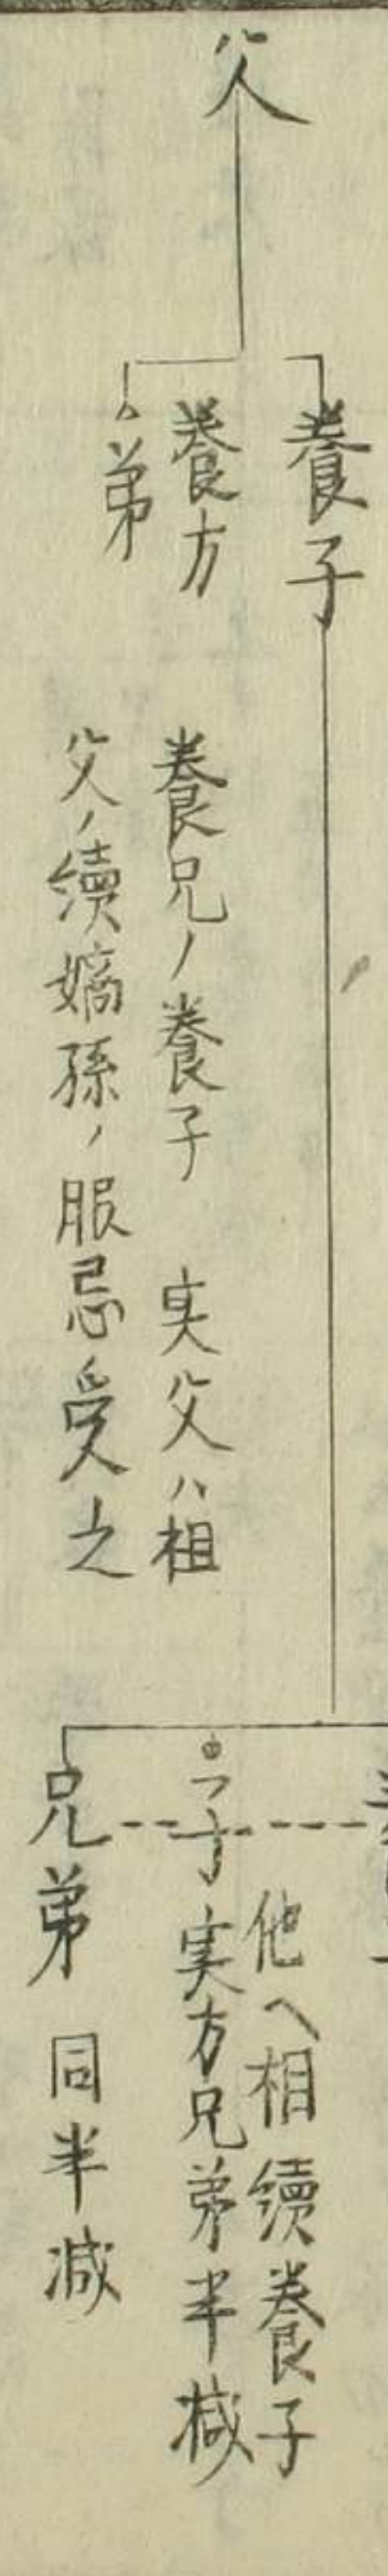 父
養子
養方
弟
養兄ノ養子 実父ハ祖
父ノ續嫡孫ノ服忌受之
他ヘ相續養子
子 実方兄弟半減
兄弟 同半減